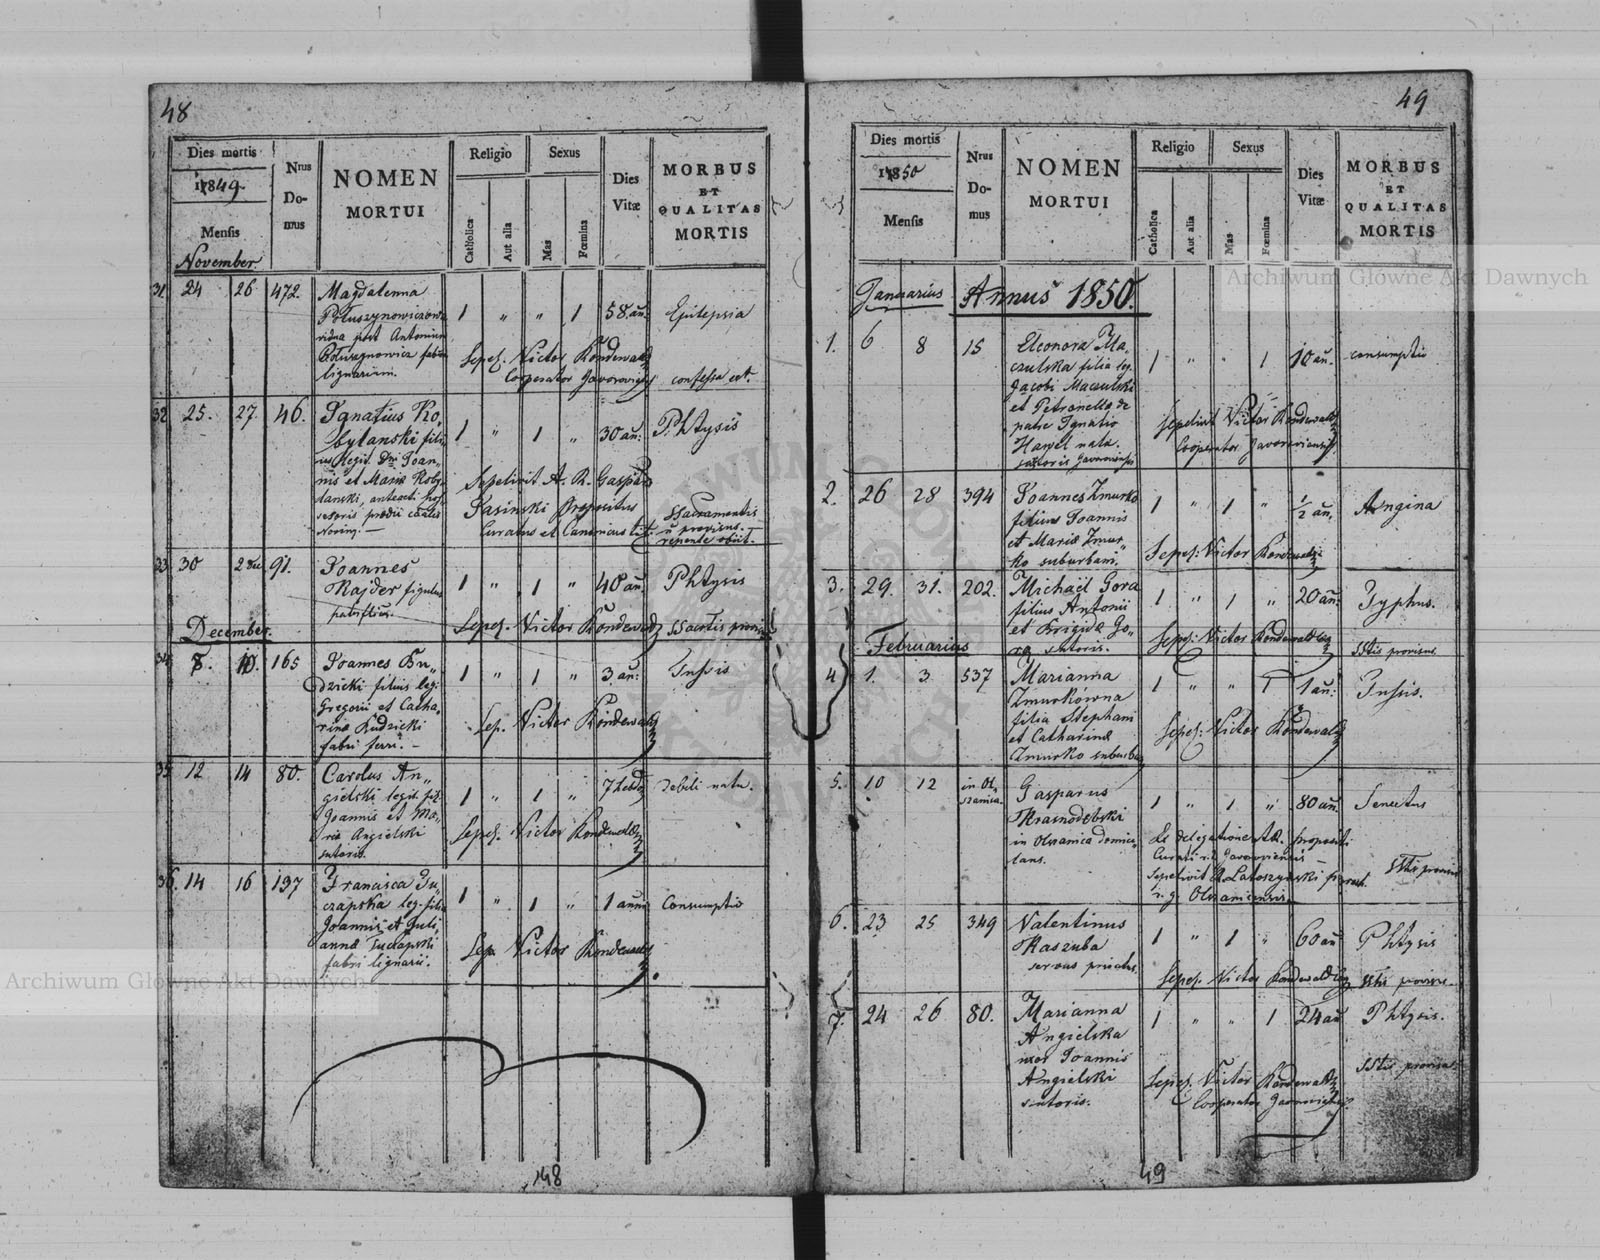 48
Dies mortis
1849.
Mensis
November.
Nrus
Do-
mus
NOMEN
MORTUI
Religio
Catholica
Aut alia
Sexus
Mas
Fœmina
Dies
Vitæ
MORBUS
ET
QUALITAS
MORTIS
31. 24 26 472. Magdalenna 1 " " 1 58 an. Epilepsia
vidua post Antonium
lignarium.
Sepel. Victor Kondewalz
Cooperator Javoroviens confessa est.
32 25. 27. 46. Ignatius Ko,,
bylanski fili
1 " 1 " 30 an: Phtysis
us legit. Dni Joan,,
nis et Mariæ Koby
Sepelivit A. R. Gaspar
Jasinski Præpositus
Curatus et Canonicus tit.
SSacramentis
repente obiit.
33 30 2 Dec 91. Joannes
Rajder figulus
1 " 1 " 40 an. Phtysis
Sepel. Victor Kondewalz
December.
34 8. 10. 165 Joannes Bu,,
dzicki filius leg:
Gregorii et Catha,
rinæ Budzicki
fabri ferri. -
1 " 1 " 3 an: Tussis
Sep. Victor Kondewalz
35 12 14 80. Carolus An,,
gielski legit. fil:
Joannis et Ma,
riæ Angielski
sutoris.
1 " 1 " 7 hebd debili natu.
Sepel. Victor Kondewalz
36. 14 16 197 Francisca Tu,,
czapska leg. filia
Joannis et Juli,
annæ Tuczapski
fabri lignarii.
1 " 1 " 1 anni Consumptio
Sep. Victor Kondewalz
148
49
Dies mortis
1850
Mensis
Nrus
Do-
mus
NOMEN
MORTUI
Religio
Catholica
Aut alia
Sexus
Mas
Fœmina
Dies
Vitæ
MORBUS
ET
QUALITAS
MORTIS
Januarius Annus 1850.
1. 6 8 15 Eleonora Ma,
czulska filia leg.
Jacobi Maczulski
et Petronella de
patre Ignatio
Hawel nata.
sutoris Javoroviensis
1 " " 1 10 an. consumptio
Sepelivit Victor Kondewalz
Cooperator Javoroviensis
2. 26 28 394 Joannes Zmurko
filius Joannis
et Mariæ Zmur,,
ko suburbani.
1 " 1 " 1/2 an. Angina
Sepel: Victor Kondewalz
3. 29. 31. 202. Michael Gora
filius Antonii
et Brigidæ Go,,
ra sutoris.
1 " 1 " 20 an: Typhus.
Sepel: Victor Kondewalz
SStis provisus.
Februarius
4 1. 3 537 Marianna
Zmurkówna
filia Stephani
et Catharinæ
Zmurko suburba
1 " " 1 1 an: Tussis.
Sepel: Victor Kondewalz
5. 10 12 in Ol,
szanica. Gasparus
Krasnodebski
in Olszanica domici,
lans.
1 " 1 " 80 an. Senectus
Ex delegatione AR. præpositi
Curati r. l. Javoroviensis
Sepelivit A. Latoszynski paroch.
r. g. Olszanicensis.
SStis provisus
6. 23 25 349 Valentinus
Kaszuba
servus privatus.
1 " 1 " 60 an Phtysis
Sepel. Victor Kondewalz SStis provisus.
7. 24 26 80. Marianna
Angielska
uxor Joannis
Angielski
sutoris.
1 " " 1 24 an Phtysis.
SStis provisa
Sepel: Victor Kondewalz
Cooperator Javoroviens.
49
Archiwum Główne Akt Dawnych
Archiwum Główne Akt Dawnych